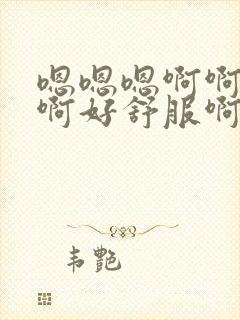 嗯嗯嗯啊啊
啊好舒服啊
韦艶